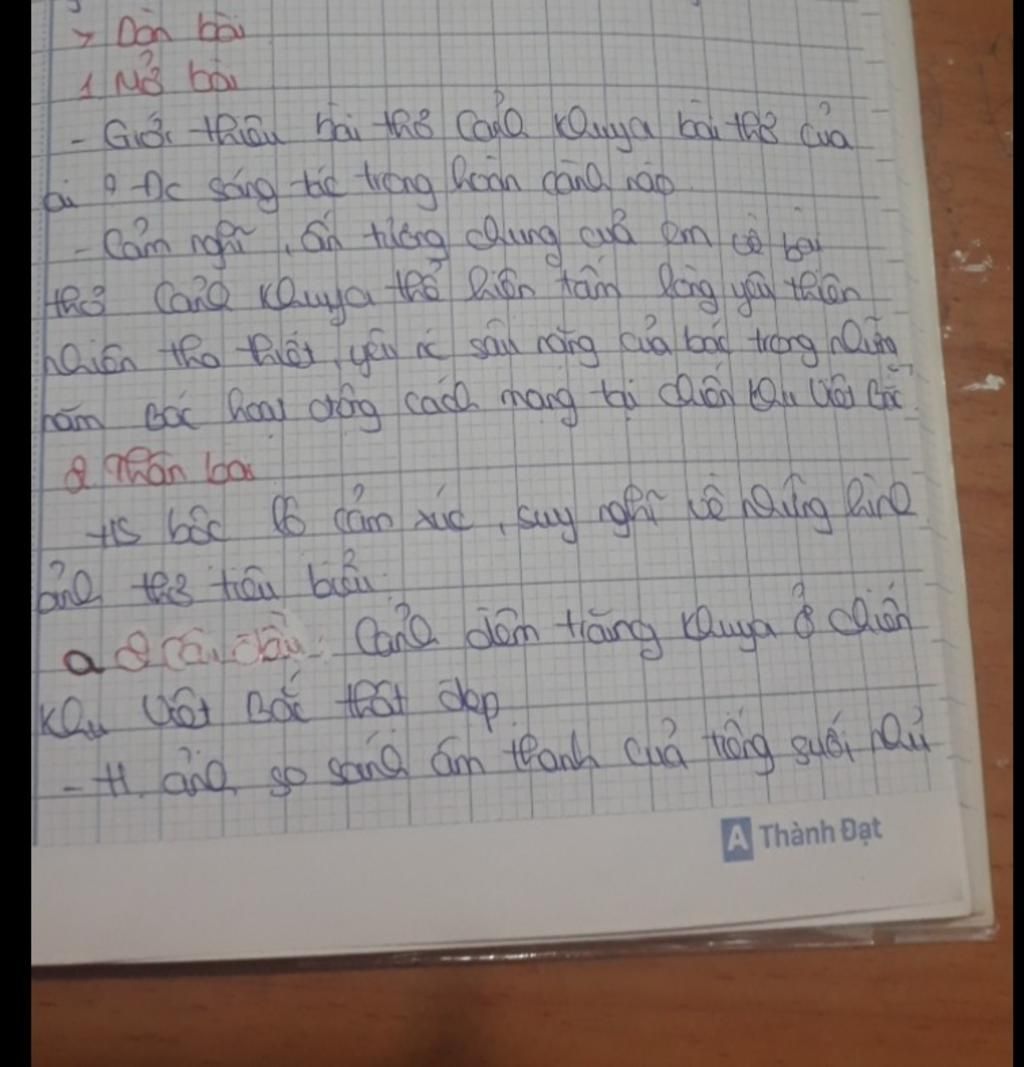 > Dàn bài
1 Mở bài
- Giới thiệu bài thơ Cảnh khuya bài thơ của
ai ? Đc sáng tác trong hoàn cảnh nào
- Cảm nghĩ, ấn tượng chung của em về bài
thơ Cảnh khuya thể hiện tấm lòng yêu thiên
nhiên tha thiết, yêu nc sâu nặng của bác trong những
năm Bác hoạt động cách mạng tại chiến khu Việt Bắc
2 Thân bài
HS bộc lộ cảm xúc, suy nghĩ về những hình
ảnh thơ tiêu biểu.
a 2 câu đầu: Cảnh đêm trăng khuya ở chiến
khu Việt Bắc thật đẹp
- H. ảnh so sánh âm thanh của tiếng suối như
A Thành Đạt